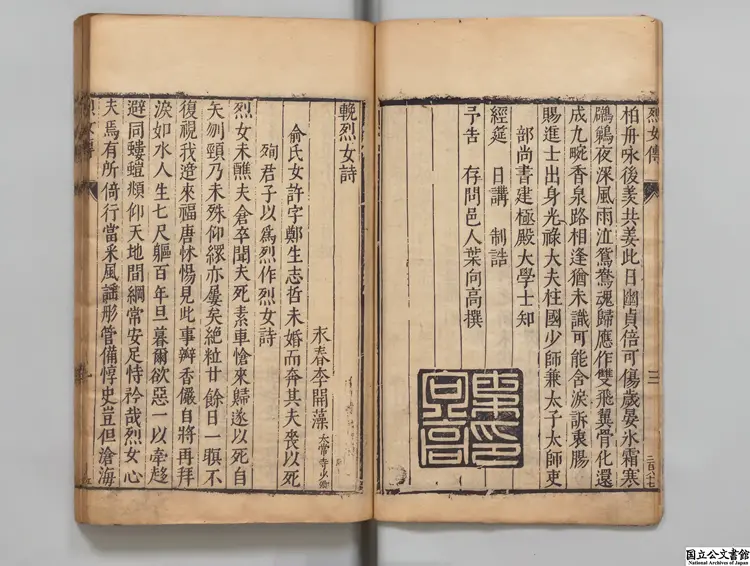 烈女傳 三 二百八十七
柏舟咏後羙共姜此日幽貞倍可傷歲晏氷霜寒
鸊鵜夜深風雨泣鴛鴦魂歸應作雙飛翼骨化還
成九畹香泉路相逢猶未識可能含淚訴衷腸
賜進士出身光祿大夫柱國少師兼太子太師吏
部尚書建極殿大學士知
經筵 日講 制誥
予告 存問邑人葉向高撰
輓烈女詩
永春李開藻 太常寺少卿
俞氏女許字鄭生志哲未婚而奔其夫喪以死
殉君子以爲烈作烈女詩
烈女未醮夫倉卒聞夫死素車愴來歸遂以死自
矢刎頸乃未殊仰繯亦屢矣絶粒廿餘日一瞑不
復視我遊來福唐怵惕見此事辦香儼自將再拜
淚如水人生七尺軀百年旦暮爾欲惡一以牽趑
避同螻螘頫仰天地間綱常安足恃矜哉烈女心
夫焉有所倚行當采風謡彤管備惇史豈但滄海
烈女傳
国立公文書館
National Archives of Japan